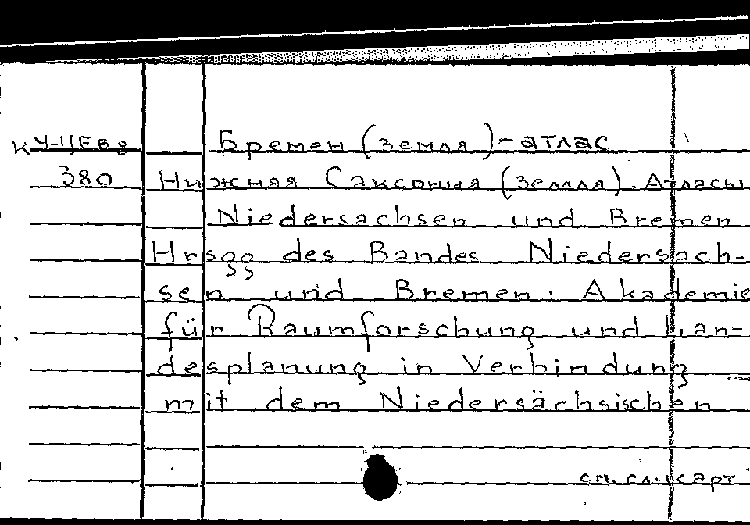 К У-ЦЕВ8
Бремен (земля)-атлас
380 Нижняя Саксония (земля). Атласы
Niedersachsen und Bremen
Hrsgg des Bandes Niedersach-
sen und Bremen: Akademie
für Raumforschung und Lan-
desplanung in Verbindung
mit dem Niedersächsischen
см. сл. карт